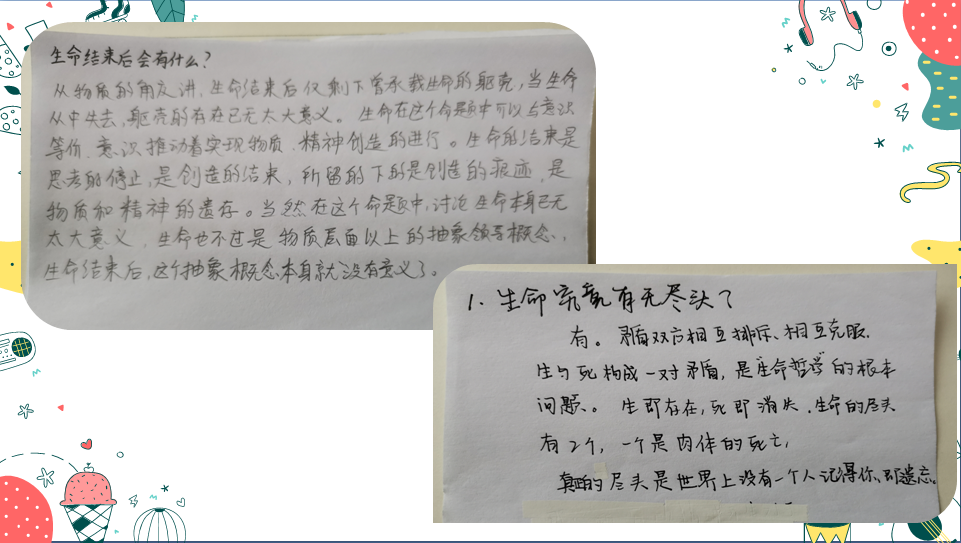 生命结束后会有什么?
从物质的角度讲,生命结束后仅剩下曾承载生命的躯壳,当生命
从中失去,躯壳的存在已无太大意义。生命在这个命题中可以与意识
等价,意识推动着实现物质、精神创造的进行。生命的结束是
思考的停止,是创造的结束,所留的下的是创造的痕迹,是
物质和精神的遗存。当然在这个命题中,讨论生命本身已无
太大意义,生命也不过是物质层面以上的抽象领导概念,
生命结束后,这个抽象概念本身就没有意义了。
1. 生命究竟有无尽头?
有。矛盾双方相互排斥、相互克服.
生与死构成一对矛盾,是"生命哲学"的根本
问题。生即存在,死即消失.生命的尽头
有2个,一个是肉体的死亡,
真正的尽头是世界上没有一个人记得你,即遗忘。